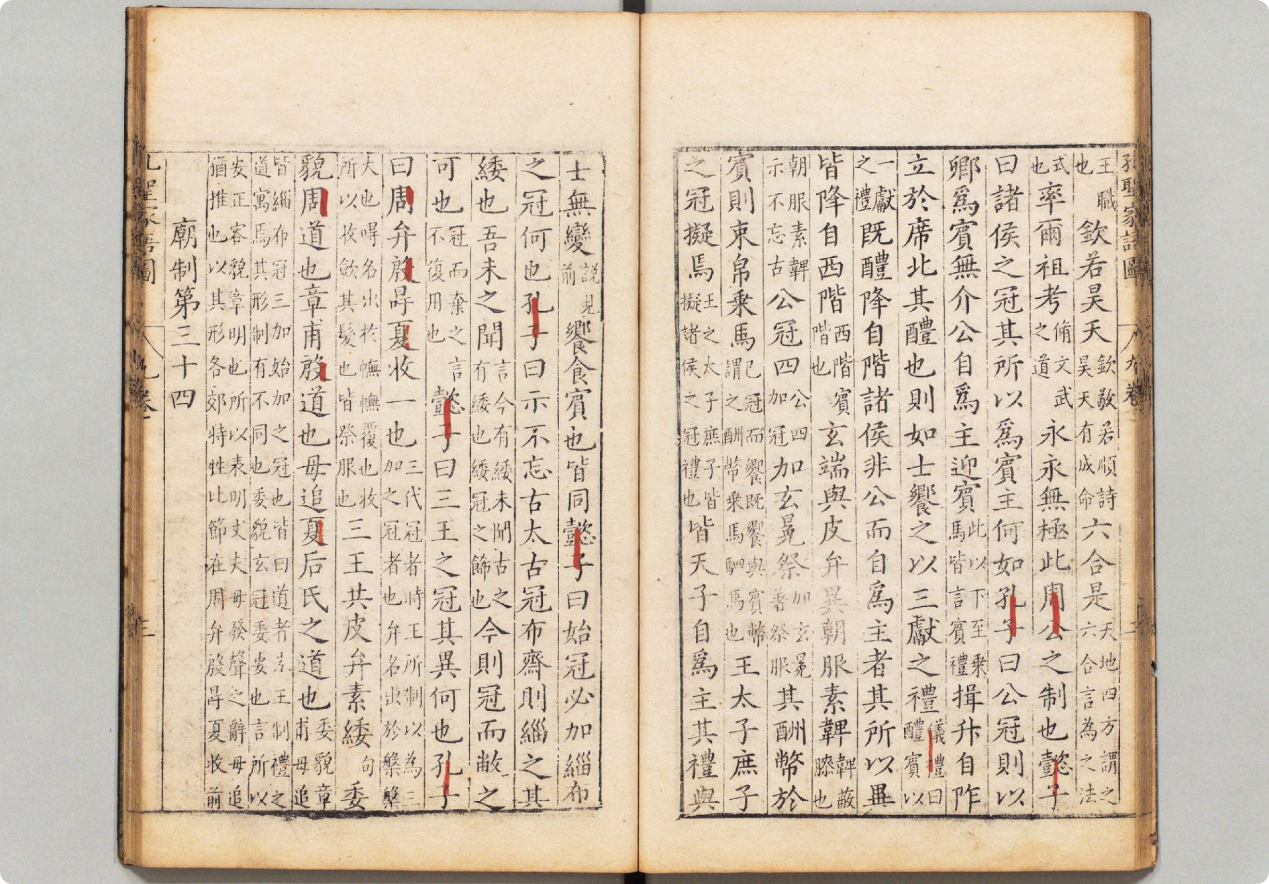 孔聖家語圖
王職也欽若昊天欽敬若順詩昊天有成命六合是天地四方謂之六合言為之法
式也率爾祖考脩文武之道永永無極此周公之制也懿子
曰諸侯之冠其所以爲賓主何如孔子曰公冠則以
卿爲賓無介公自爲主迎賓此以下至乘馬皆言賓禮揖升自阼
立於席北其醴也則如士饗之以三獻之禮儀禮曰醴賓以
一獻之禮既醴降自階諸侯非公而自爲主者其所以異
皆降自西階西階賓階也玄端與皮弁異朝服素鞸鞸蔽膝也
朝服素鞸示不忘古公冠四公四加冠加玄冕祭加玄冕著祭服其酬幣於
賓則束帛乘馬已冠而饗既饗與賓幣謂之酬幣乘馬駟馬也王太子庶子
之冠擬焉王之太子庶子皆擬諸侯之冠禮也皆天子自爲主其禮與
士無變說見前饗食賓也皆同懿子曰始冠必加緇布
之冠何也孔子曰示不忘古太古冠布齊則緇之其
緌也吾未之聞言今有緌未聞古之有緌也緌冠之飾也今則冠而敝之
可也冠而棄之言不復用也懿子曰三王之冠其異何也孔子
曰周弁殷冔夏收一也三代冠者時王所制以為三加之冠者也弁名出於槃槃
大也冔名出於幠幠覆也收所以收斂其髮也皆祭服也三王共皮弁素緌句委
貌周道也章甫殷道也毋追夏后氏之道也委貌章甫毋追
皆緇布冠三加始加之冠也皆曰道者先王制禮之道寓焉其形制有不同也委貌玄冠委安也言所以
安正容貌章明也所以表明丈夫毋發聲之辭毋追猶推也以其形各郊特牲比節在周弁殷冔夏收前
廟制第三十四
孔聖家語圖